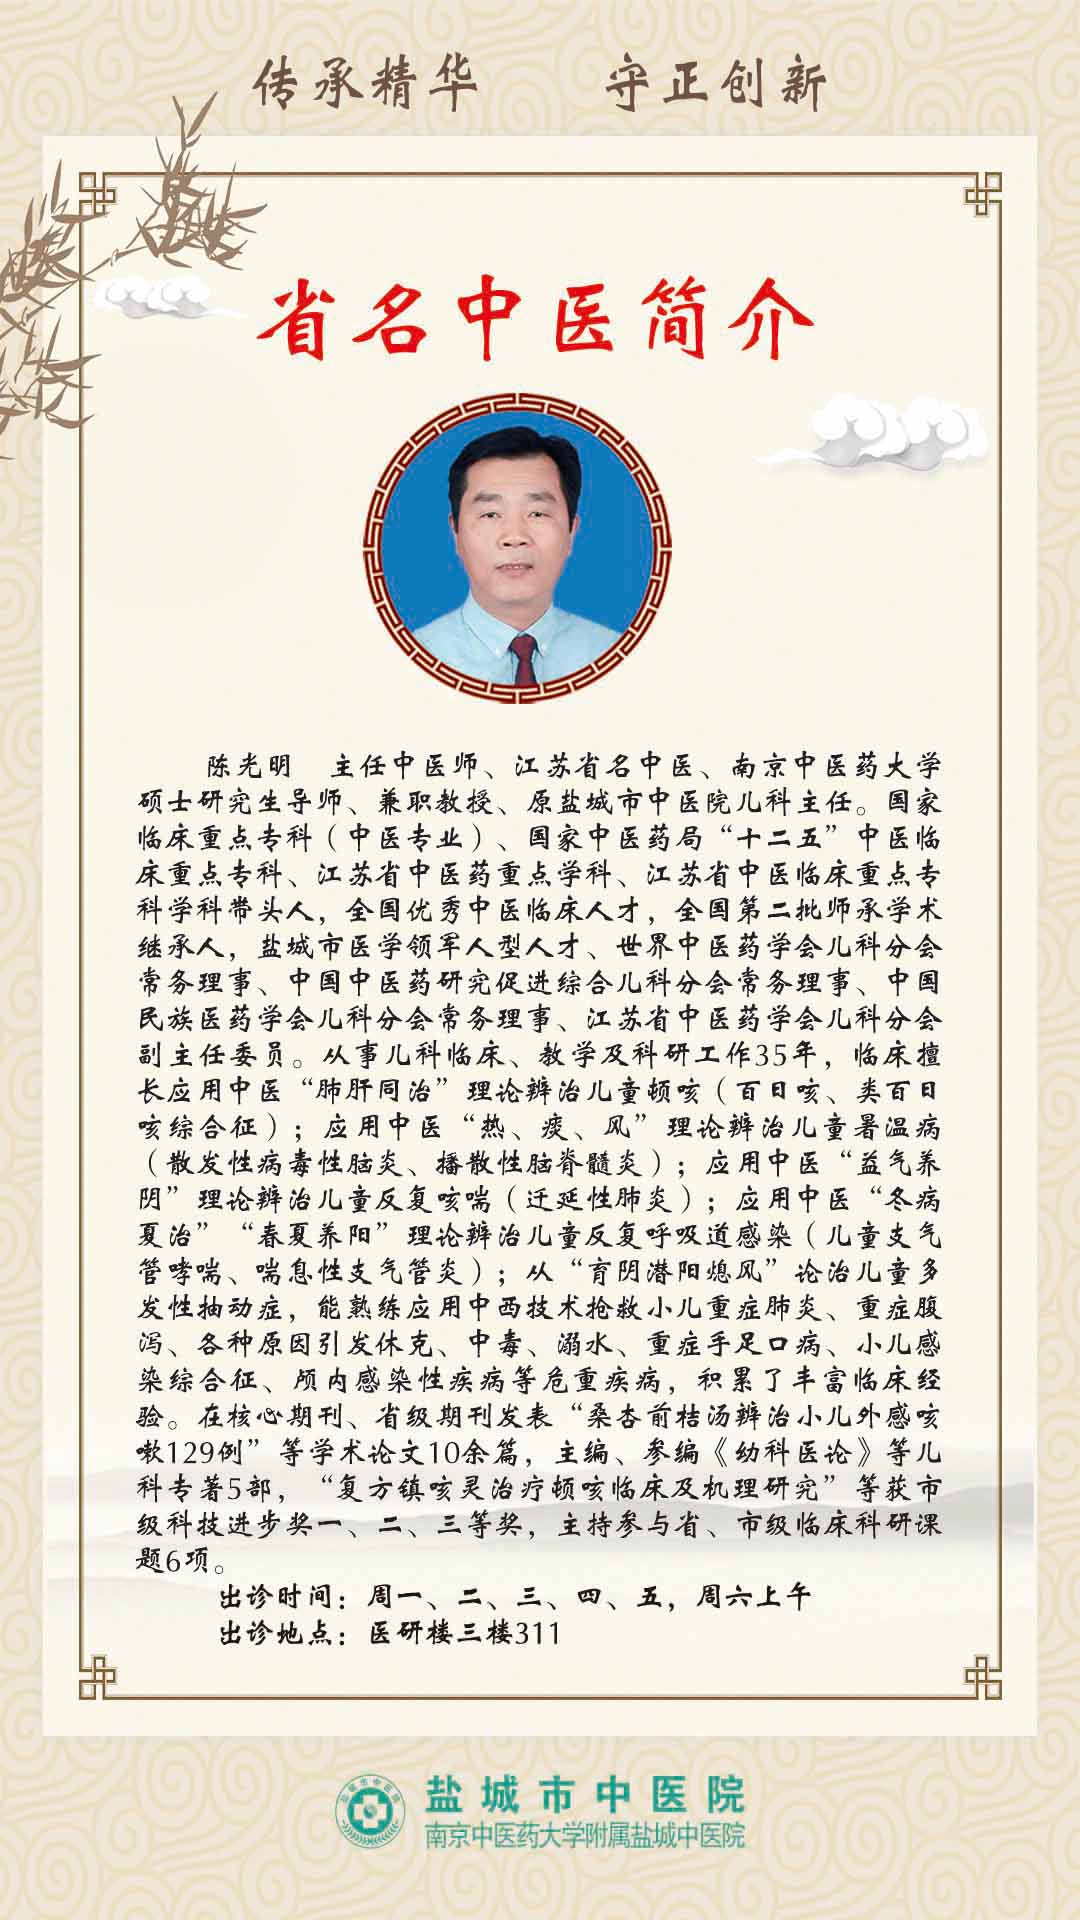 传承精华 守正创新
省名中医简介
陈光明 主任中医师、江苏省名中医、南京中医药大学
硕士研究生导师、兼职教授、原盐城市中医院儿科主任。国家
临床重点专科（中医专业）、国家中医药局“十二五”中医临
床重点专科、江苏省中医药重点学科、江苏省中医临床重点专
科学科带头人，全国优秀中医临床人才，全国第二批师承学术
继承人，盐城市医学领军人型人才、世界中医药学会儿科分会
常务理事、中国中医药研究促进综合儿科分会常务理事、中国
民族医药学会儿科分会常务理事、江苏省中医药学会儿科分会
副主任委员。从事儿科临床、教学及科研工作35年，临床擅
长应用中医“肺肝同治”理论辨治儿童顿咳（百日咳、类百日
咳综合征）；应用中医“热、痰、风”理论辨治儿童暑温病
（散发性病毒性脑炎、播散性脑脊髓炎）；应用中医“益气养
阴”理论辨治儿童反复咳喘（迁延性肺炎）；应用中医“冬病
夏治”“春夏养阳”理论辨治儿童反复呼吸道感染（儿童支气
管哮喘、喘息性支气管炎）；从“育阴潜阳熄风”论治儿童多
发性抽动症，能熟练应用中西技术抢救小儿重症肺炎、重症腹
泻、各种原因引发休克、中毒、溺水、重症手足口病、小儿感
染综合征、颅内感染性疾病等危重疾病，积累了丰富临床经
验。在核心期刊、省级期刊发表“桑杏前桔汤辨治小儿外感咳
嗽129例”等学术论文10余篇，主编、参编《幼科医论》等儿
科专著5部，“复方镇咳灵治疗顿咳临床及机理研究”等获市
级科技进步奖一、二、三等奖，主持参与省、市级临床科研课
题6项。
出诊时间：周一、二、三、四、五，周六上午
出诊地点：医研楼三楼311
盐城市中医院
南京中医药大学附属盐城中医院